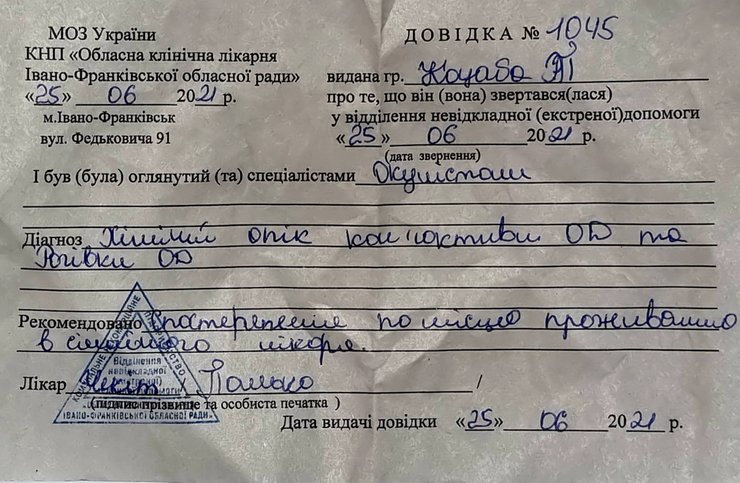 МОЗ України
КНП «Обласна клінічна лікарня
Івано-Франківської обласної ради»
«25» 06 2021 р.
м.Івано-Франківськ
вул. Федьковича 91
ДОВІДКА № 1045
видана гр. Коцаба
про те, що він (вона) звертався(лася)
у відділення невідкладної (екстреної)допомоги
«25» 06 2021 р.
(дата звернення)
І був (була) оглянутий (та) спеціалістами Окулістом
Діагноз Хімічний опік кон'юктиви OD та
Рогівки OD
Рекомендовано Спостереження по місцю проживання
в сімейного лікаря.
Лікар
/
(підпис прізвище та особиста печатка )
Дата видачі довідки «25» 06 2021 р.
Відділення
невідкладної
ІВАНО-ФРАНКІВСЬКОЇ ОБЛАСНОЇ РАДИ